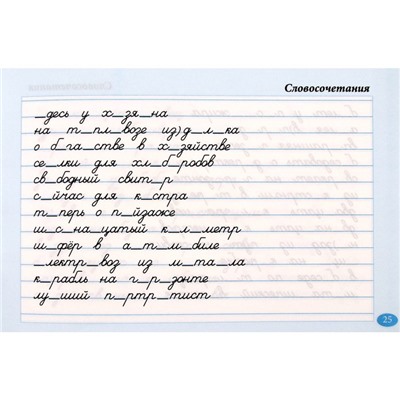 Словосочетания
_десь у х_зя_на
на т_пл_возе из)д_л_ка
о б_га_стве в х_зяйстве
се_лки для хл_б_робов
св_бодный свит_р
с_йчас для к_стра
т_перь о п_йзаже
ш_с_на_цатый к_л_метр
ш_фёр в а_т_м_биле
_лектр_воз из м_та_ла
к_рабль на г_р_зонте
лу_ший п_ртр_тист
25